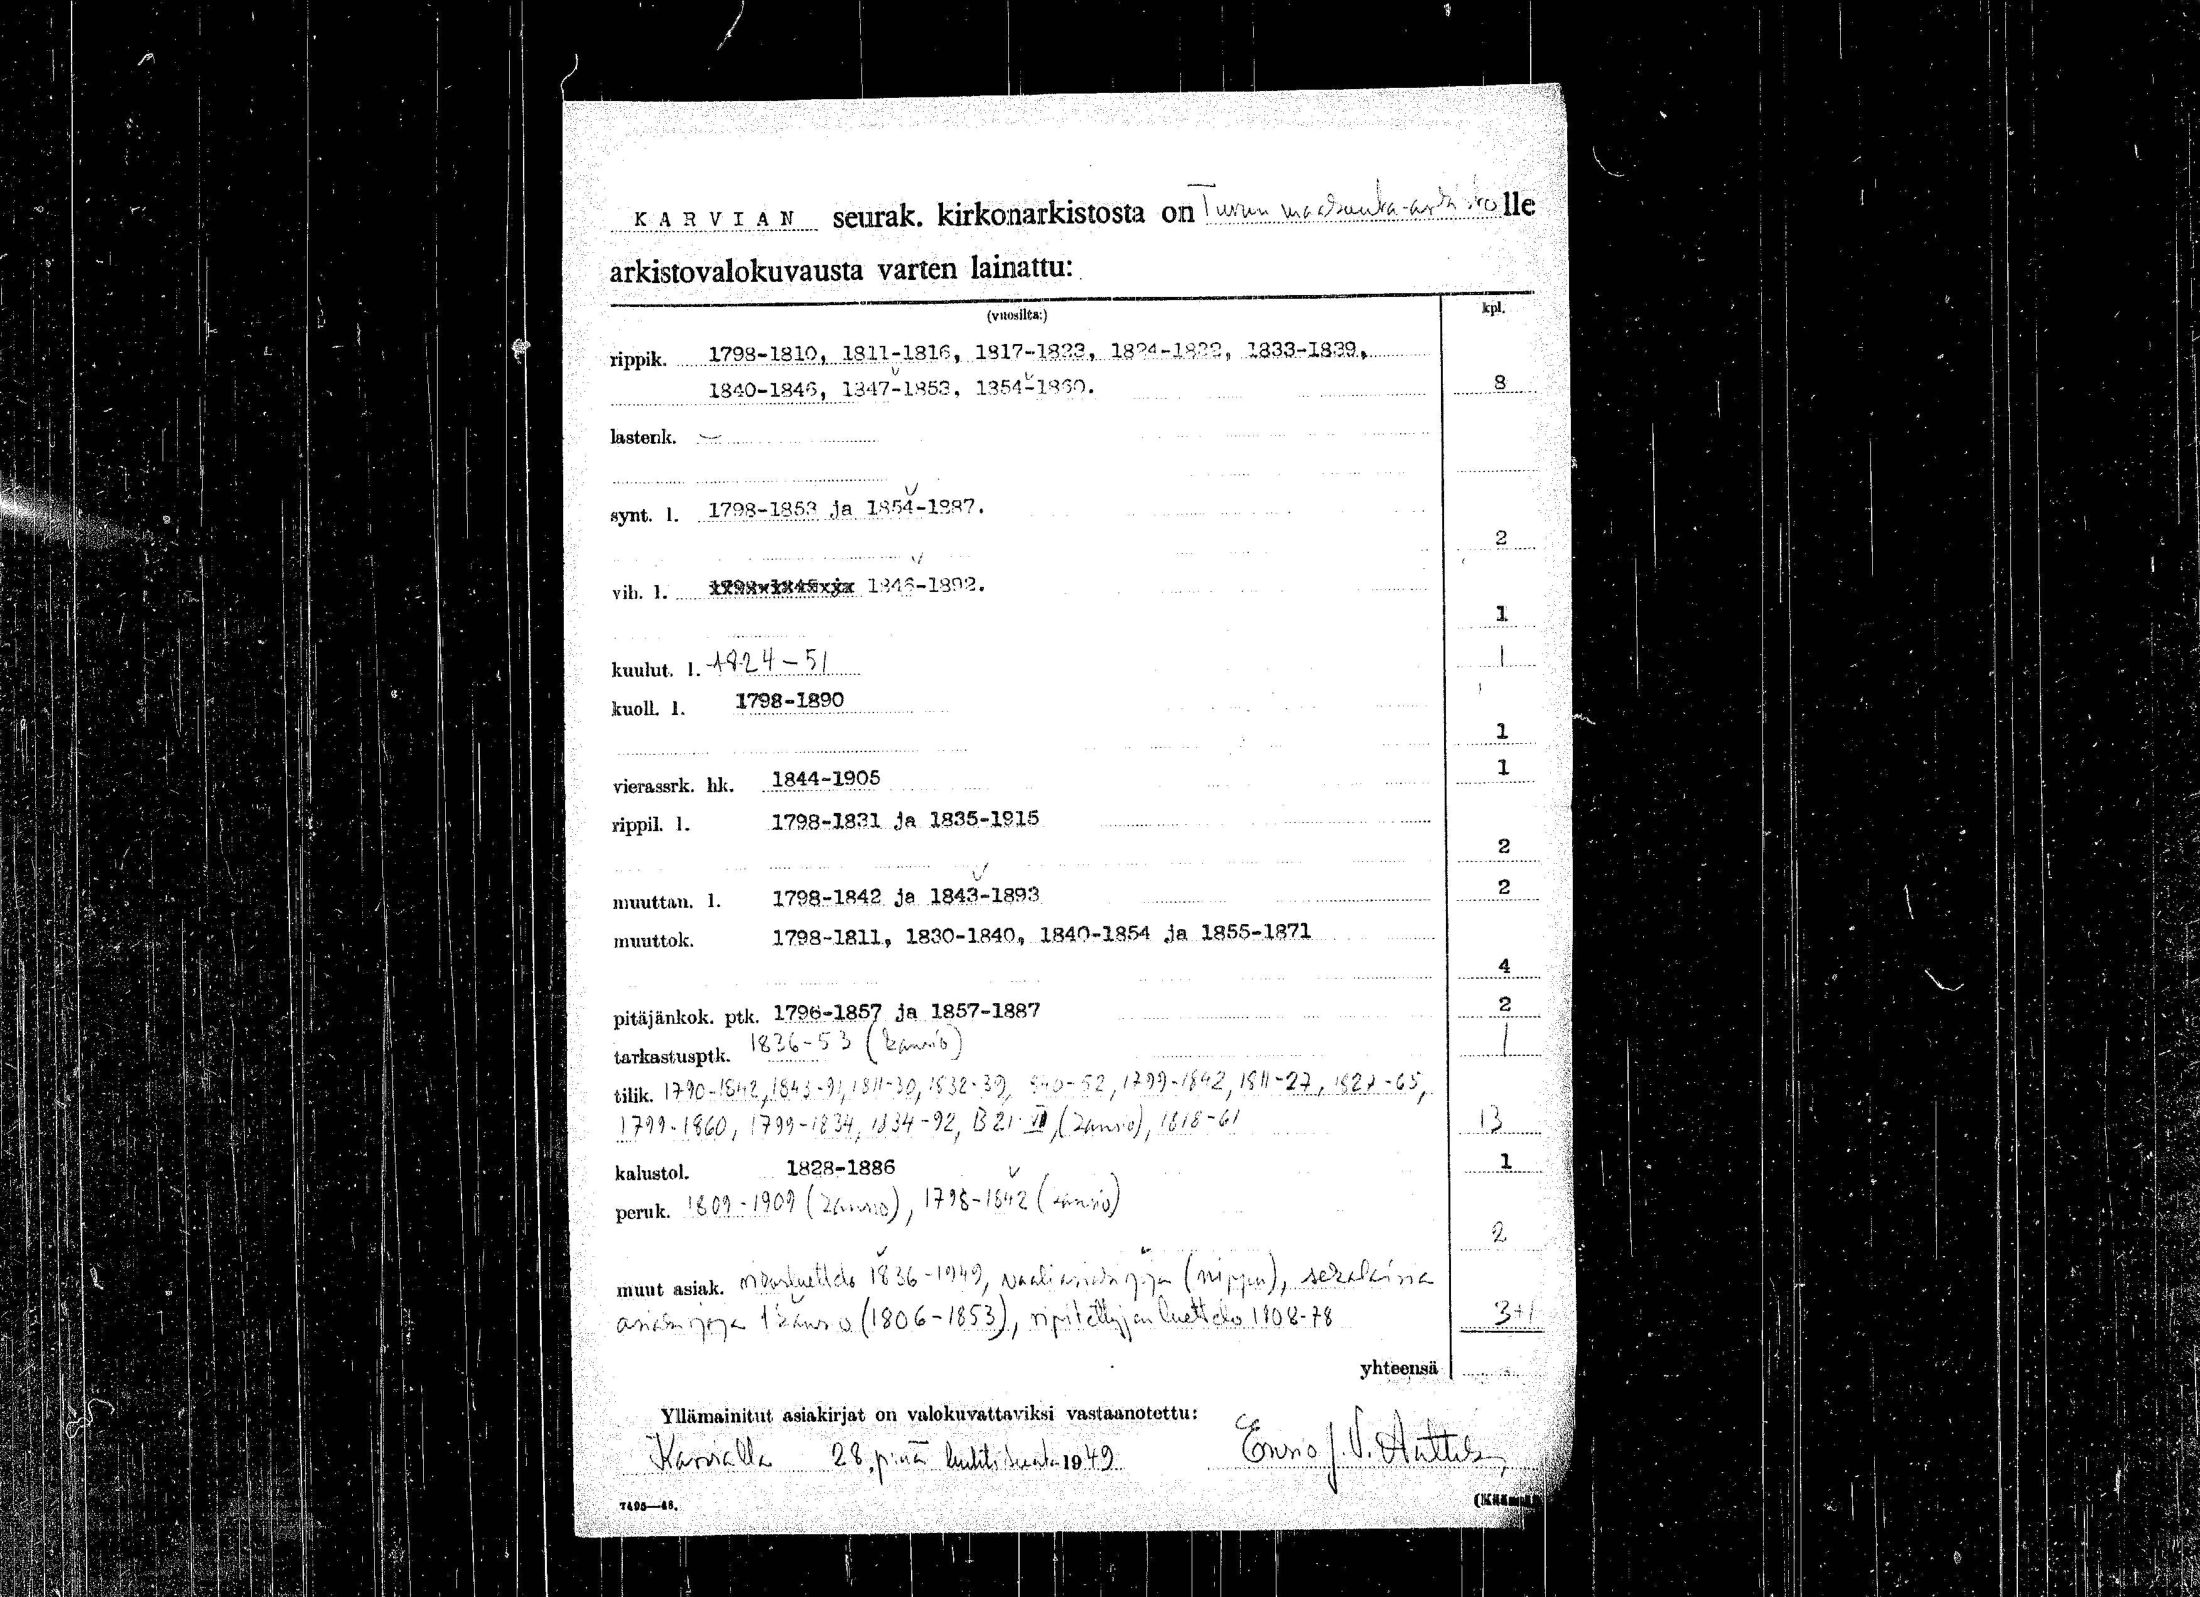 KARVIAN seurak. kirkonarkistosta on Turun maakunta-arkistolle
arkistovalokuvausta varten lainattu:
(vuosilta:) kpl.
rippik. 1798-1810, 1811-1816, 1817-1823, 1824-1832, 1833-1839,
1840-1846, 1847-1853, 1854-1860. 8
lastenk. —
synt. l. 1798-1853 ja 1854-1887.
2
vih. l. 1846-1892.
1
kuulut. l. 1824-51 1
kuoll. l. 1798-1890
1
vierassrk. hk. 1844-1905 1
rippil. l. 1798-1831 ja 1835-1915
2
muuttan. l. 1798-1842 ja 1843-1893 2
muuttok. 1798-1811, 1830-1840, 1840-1854 ja 1855-1871
4
pitäjänkok. ptk. 1796-1857 ja 1857-1887 2
tarkastusptk. 1836-53 (kansio) 1
tilik. 1790-1842, 1843-91, 1811-30, 1832-39, 840-52, 1799-1842, 1811-27, 1827-65,
1799-1860, 1799-1834, 1834-92, B 21 VII, (kansio), 1818-61 13
kalustol. 1828-1886 1
peruk. 1809-1909 (kansio), 1798-1842 (kansio)
2
muut asiak. 1836-1949, vaaliasiakirjoja (nippu), sekalaisia
asiakirjoja 1 kansio (1806-1853), ripitettyjen luettelo 1808-78 3+1
yhteensä
Yllämainitut asiakirjat on valokuvattaviksi vastaanotettu:
Karvialla 28 p:nä huhtikuuta 1949 Ensio J. V.
7495—48.